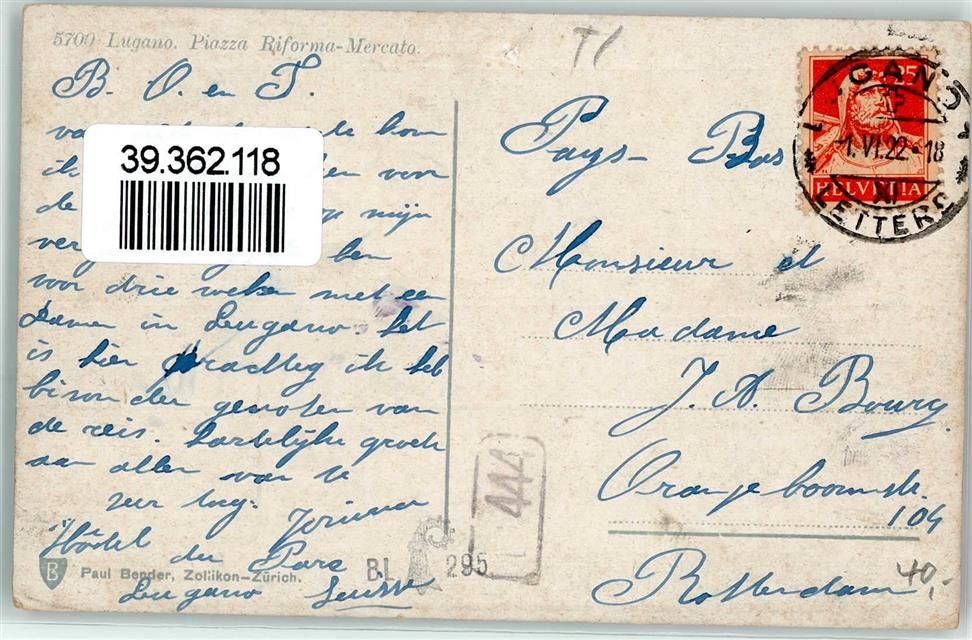 5700 Lugano. Piazza Riforma-Mercato.
B. O. en T.
39.362.118
kom
ik voor
de mijn
ver ben
voor drie weken met een
Damen in Leugano. het
is hier prachteg ik heb
bizonder genoten van
de reis. Hartelijke groeten
aan allen van je
zeer toeg.
Hôtel du Parc
Leugano
Paul Bender, Zollikon-Zürich.
BL 295
444
T1
25
HELVETIA
LUGANO 1
1.VI.22-18
XI
LETTERE
Pays-Bas
Monsieur et
Madame
J. A. Bourg.
Oranjeboomstr.
104
Rotterdam.
40,-